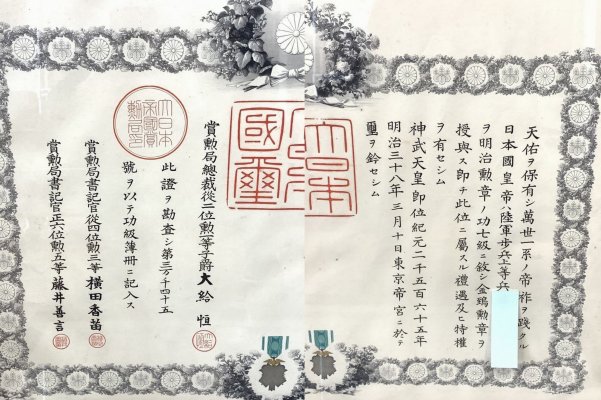 天佑ヲ保有シ萬世一系ノ帝祚ヲ踐タル
日本國皇帝ハ陸軍歩兵上等兵
ヲ明治勲章ノ功七級ニ敍シ金鵄勲章ヲ
授與ス即チ此位ニ屬スル禮遇及ヒ特權
ヲ有セシム
神武天皇即位紀元二千五百六十五年
明治三十八年三月十日東京帝宮ニ於テ
璽ヲ鈐セシム
大日本
國璽
賞勲局總裁從二位勲一等子爵大給恒
此證ヲ勘査シ第三万千四十五
號ヲ以テ功級簿冊ニ記入ス
賞勲局書記官從四位勲三等横田香苗
賞勲局書記官正六位勲五等藤井善言